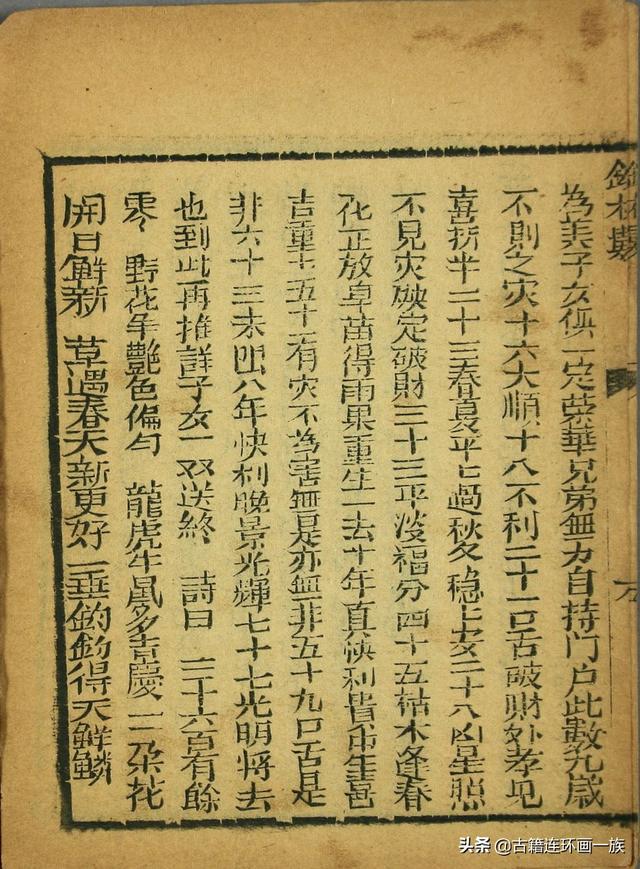 為美子女俱一定荣華兄弟無力自持門户此數九歲
不則之灾十六大順十八不利二十一口舌破財外孝見
喜折半二十三春夏平七過秋冬稳上安二十八凶星照
不見灾殃定破財三十三平淡福分四十五枯木逢春
花正放旱苗得雨果重生一去十年真快利
吉重七五十一有灾不為害無是亦無非五十九口舌是
非六十三未出八年快利晚景光輝七十七光明將去
也到此再推詳子女一双送終 詩曰 二十六百有餘
零 野花争艷色偏匀 龍虎牛鼠多吉慶 一朶花
開日鮮新 草遇春天新更好 一垂鈎釣得天鮮鱗
头条 @古籍连环画一族